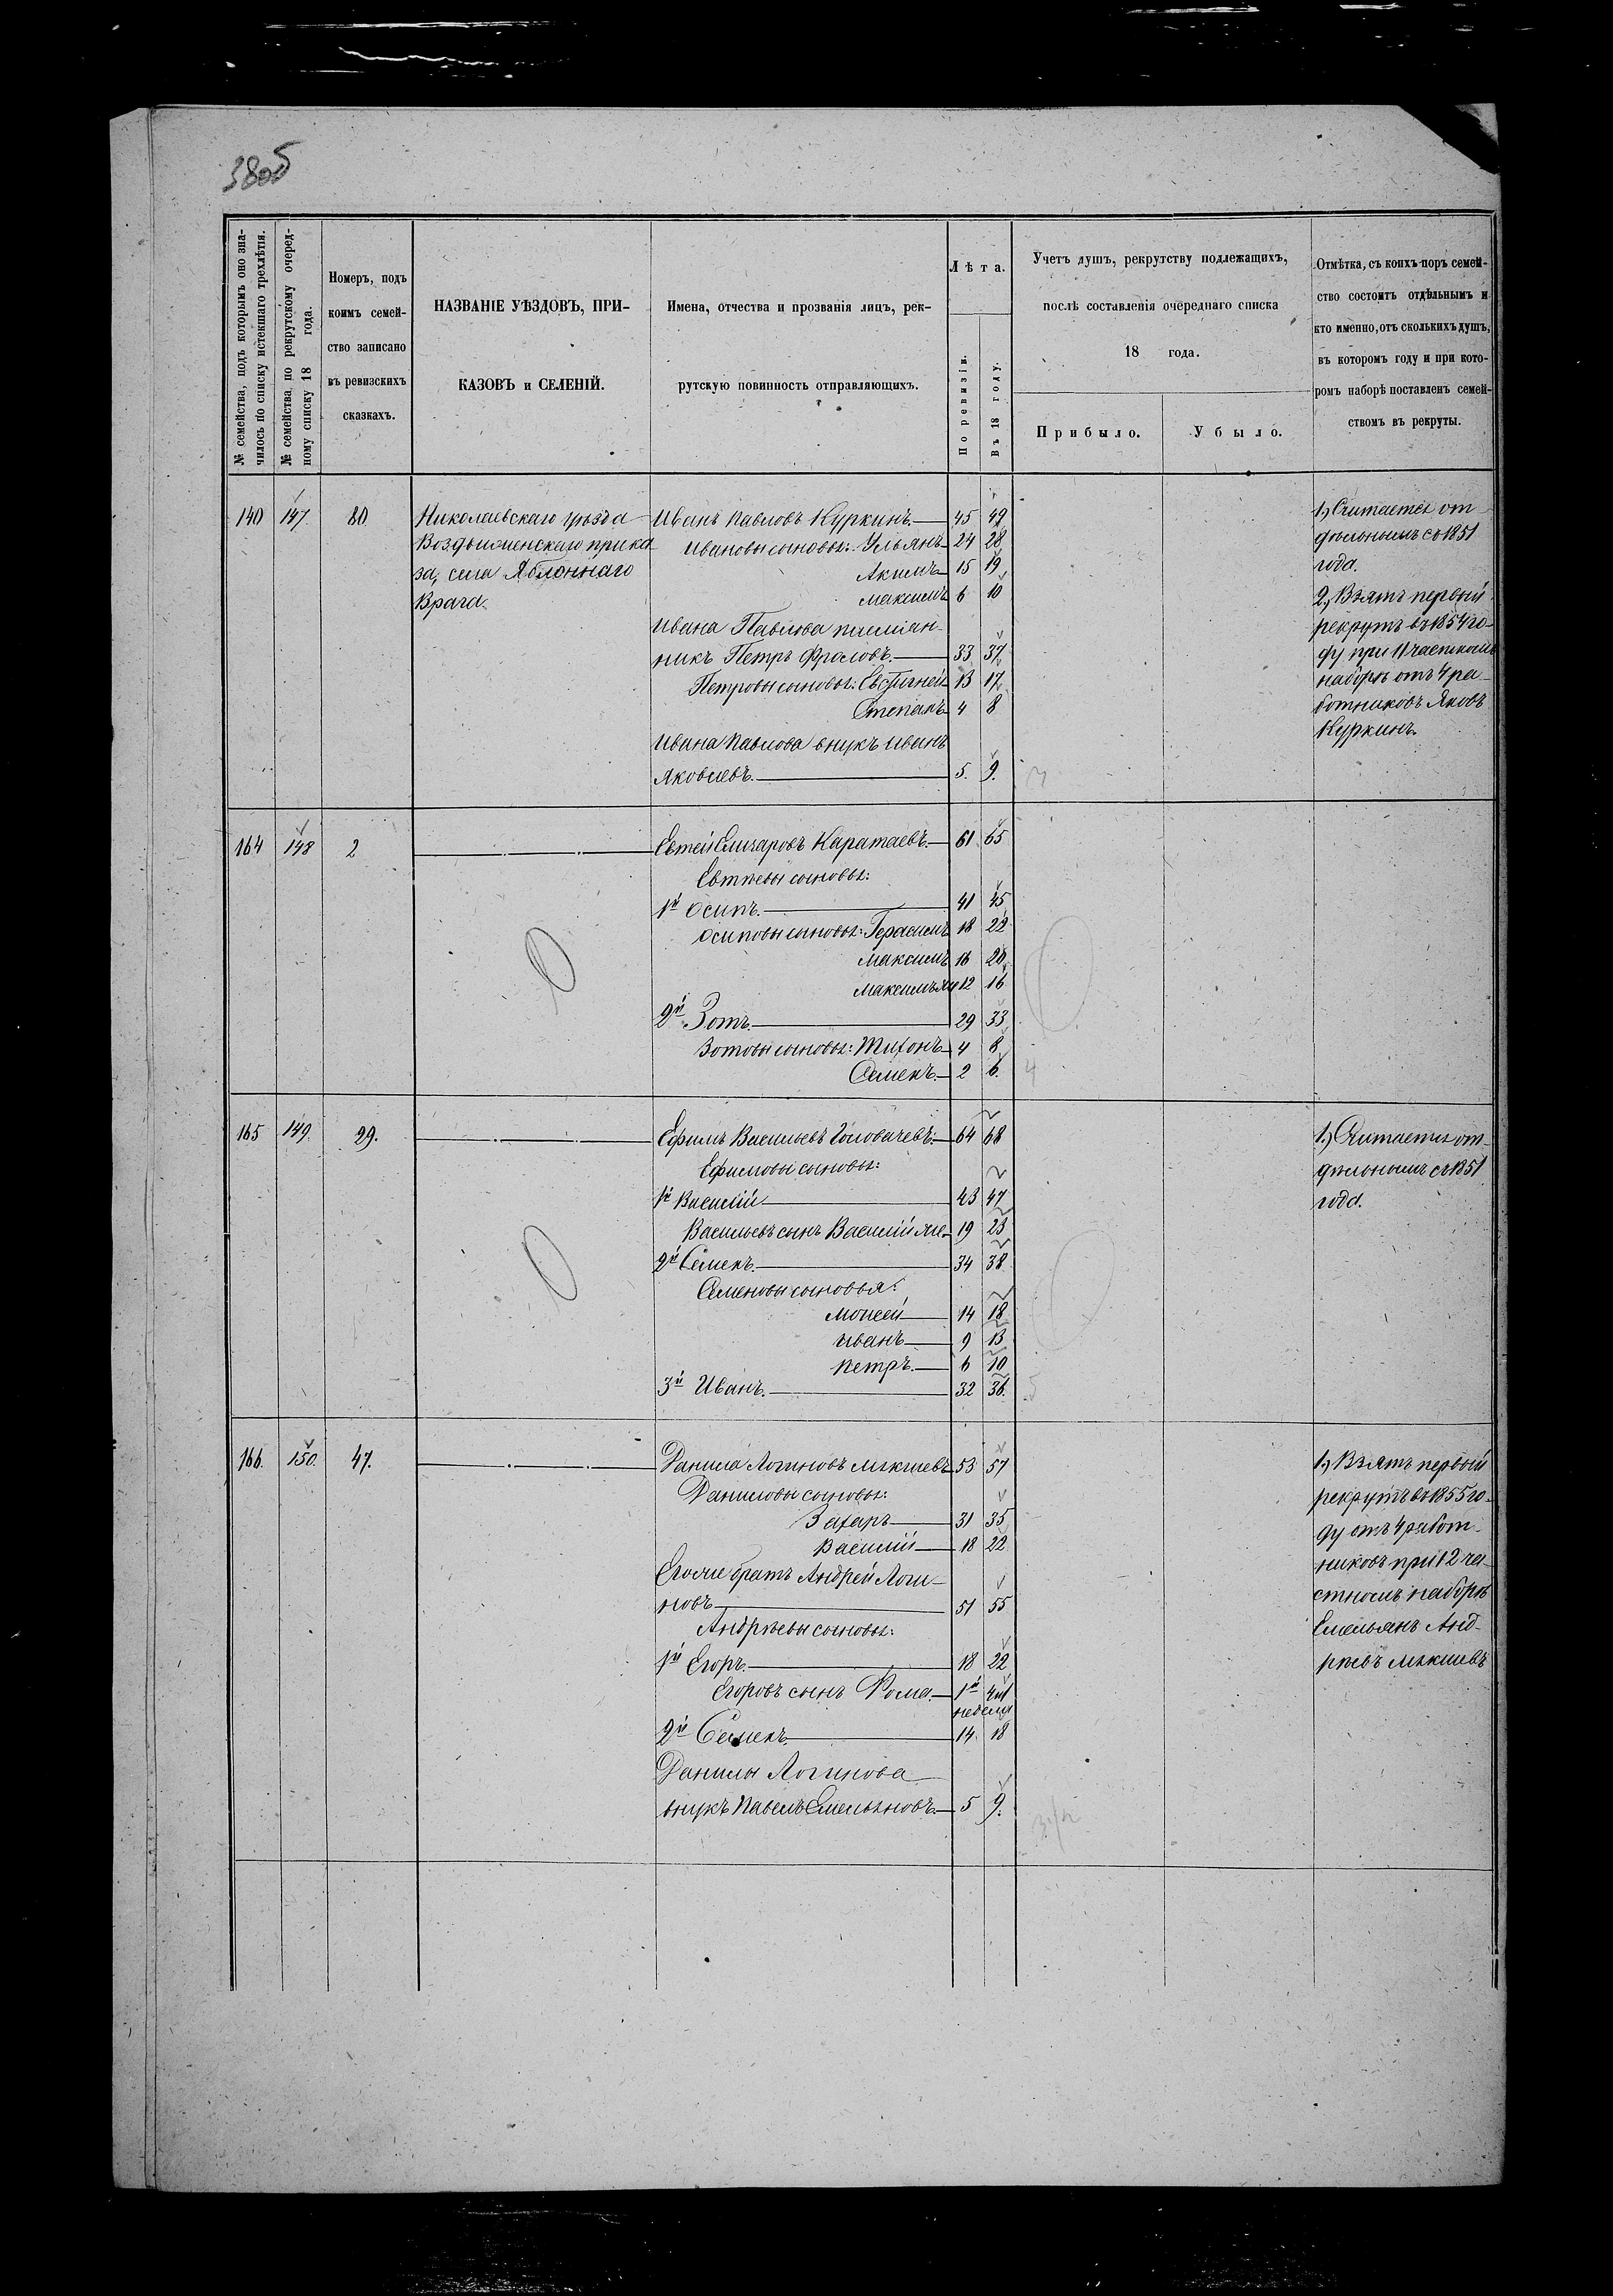 380б
№ семейства, подъ которымъ оно зна-
чилось по списку истекшаго трехлѣтія.
№ семейства по рекрутскому очеред-
ному списку 18 года.
Номеръ, подъ
коимъ семей-
ство записано
въ ревизскихъ
сказкахъ.
НАЗВАНІЕ УѢЗДОВЪ, ПРИ-
КАЗОВЪ и СЕЛЕНІЙ.
Имена, отчества и прозванія лицъ, рек-
рутскую повинность отправляющихъ.
Лѣта.
По ревизіи.
Въ 18 году.
Учетъ душъ, рекрутству подлежащихъ,
послѣ составленія очереднаго списка
18 года.
Прибыло.
Убыло.
Отмѣтка, съ коихъ поръ семей-
ство состоитъ отдѣльнымъ и
кто именно, отъ сколькихъ душъ,
въ которомъ году и при кото-
ромъ наборѣ поставленъ семей-
ствомъ въ рекруты.
140 147 80
Николаевскаго уѣзда
Воздвиженскаго прика-
за, села Яблоннаго
Врага.
Иванъ Павловъ Куркинъ. 45 49
Ивановы сыновья: Ульянъ 24 28
Акимъ 15 19
Максимъ 6 10
Ивана Павлова племян-
никъ Петръ Фроловъ. 33 37
Петровы сыновья: Евстигней 13 17
Степанъ 4 8
Ивана Павлова внукъ Иванъ
Яковлевъ. 5. 9. 3
1) Считается от-
дѣльнымъ съ 1851
года.
2) Взятъ первый
рекрутъ въ 1854 го-
ду при 11 частномъ
наборѣ отъ 4 ра-
ботниковъ Яковъ
Куркинъ.
164 148 2
Евтей Елизаровъ Каратаевъ. 61 65
Евтѣевы сыновья:
1й Осипъ. 41 45
Осиповы сыновья: Герасимъ 18 22
Максимъ 16 20
Максимъянъ 12 16
2й Зотъ. 29 33
Зотовы сыновья: Тихонъ 4 8
Семенъ. 2 6. 4
165 149. 29.
Ефимъ Васильевъ Головачевъ. 64 68
Ефимовы сыновья:
1й Василій 43 47
Васильевъ сынъ Василій же 19 23
2й Семенъ. 34 38
Семеновы сыновья:
Моисей 14 18
Иванъ 9 13
Петръ. 6 10
3й Иванъ. 32 36. 5
1.) Считается от-
дѣльнымъ съ 1851
года.
166. 150. 47.
Данила Логиновъ Мякшевъ 53 57
Даниловы сыновья:
Захаръ 31 35
Василій 18 22
Его же братъ Андрей Логи-
новъ 51 55
Андрѣевы сыновья:
1й Егоръ. 18 22
Егоровъ сынъ Фома. 1й 4и1
недели
2й Семенъ. 14. 18
Данилы Логинова
внукъ Павелъ Емельяновъ. 5 9.
1.) Взятъ первый
рекрутъ въ 1855 го-
ду отъ 4 работ-
никовъ при 12 ча-
стномъ наборѣ
Емельянъ Анд-
рѣевъ Мякшевъ